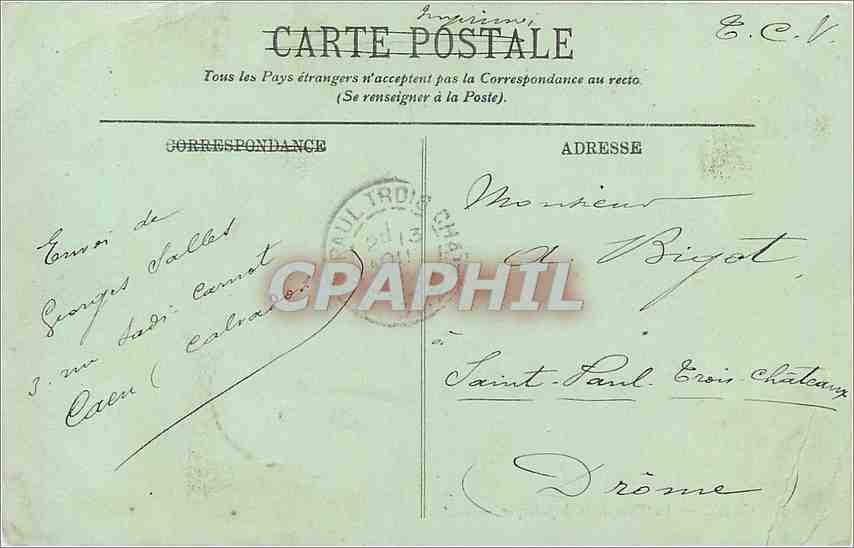 Imprimés
T. C. V.
CARTE POSTALE
Tous les Pays étrangers n'acceptent pas la Correspondance au recto
(Se renseigner à la Poste).
CORRESPONDANCE
ADRESSE
Envoi de
Georges Salles
3. rue Sadi Carnot
Caen (Calvados)
PAUL TROIS CHAT
13
CPAPHIL
Monsieur
A. Bigot,
à
Saint-Paul-Trois-Châteaux
(Drôme)